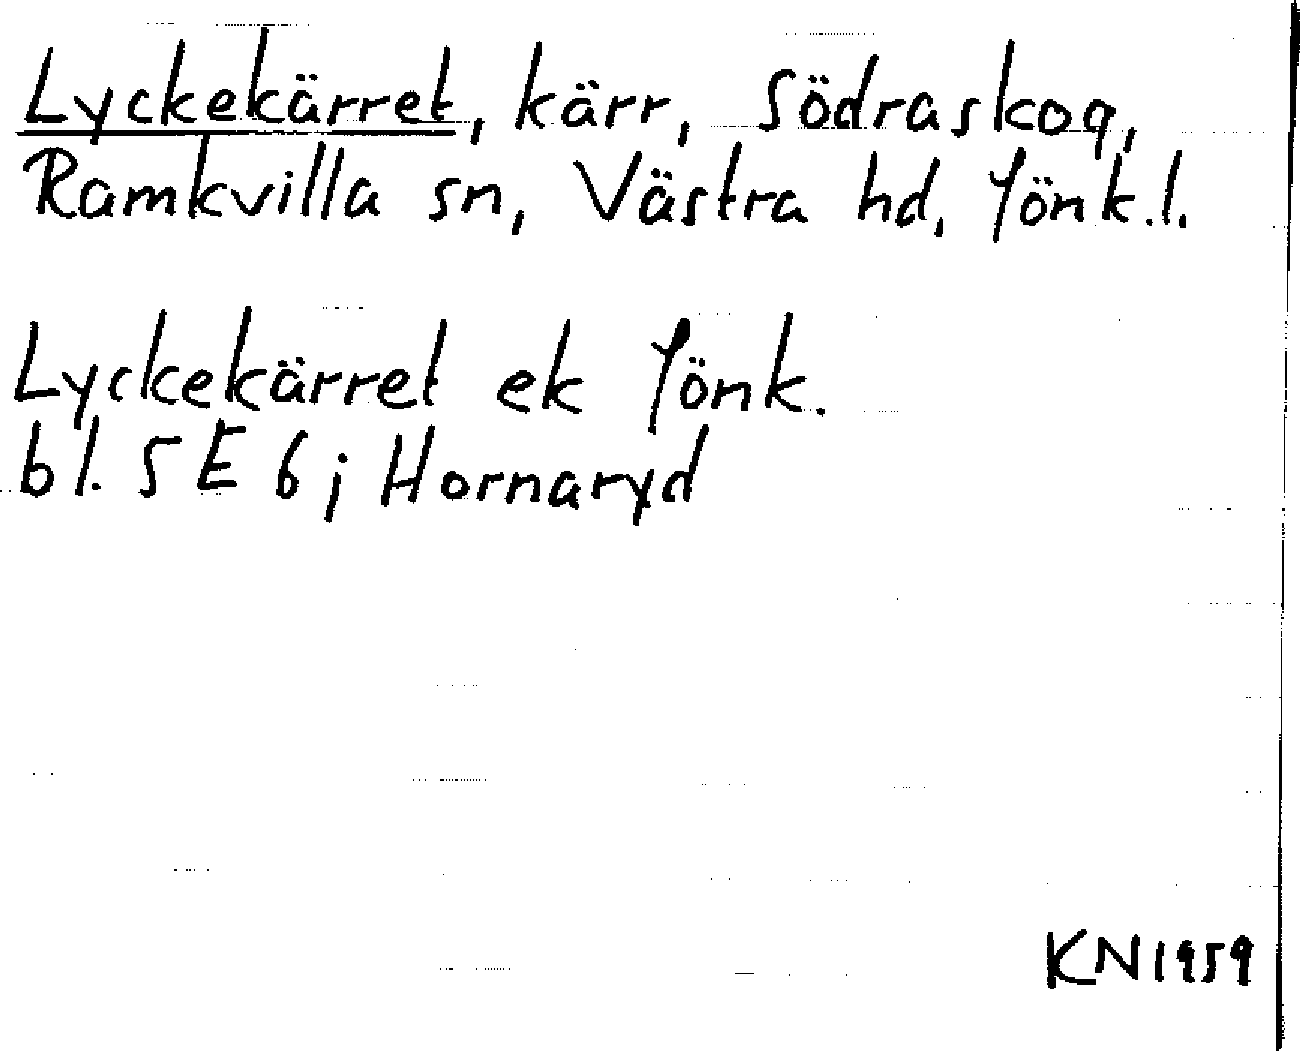 Lyckekärret, kärr, Södraskog,
Ramkvilla sn, Västra hd, Jönk.l.
Lyckekärret ek Jönk.
bl. 5 E 6 j Hornaryd
KN1959